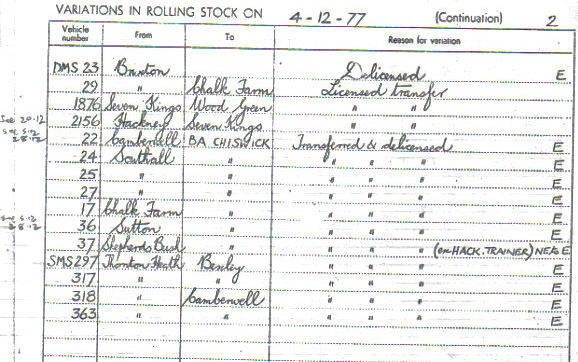 VARIATIONS IN ROLLING STOCK ON 4-12-77 (Continuation) 2
Vehicle number From To Reason for variation
DMS 23 Brixton Delicensed E
29 " Chalk Farm Licensed transfer
1876 Seven Kings Wood Green " "
See 20.12 2156 Hackney Seven Kings " "
See 5.12 28.12 22 Camberwell BA CHISWICK Transferred & delicensed E
24 Southall " " " " E
25 " " " " " E
27 " " " " " E
17 Chalk Farm " " " " E
See 5.12 28.12 36 Sutton " " " " E
37 Shepherds Bush " " " " (on HACK. TRAINER) NE & E
SMS 297 Thornton Heath Bexley " " " E
317 " " " " " E
318 " Camberwell " " " E
363 " " " " " E